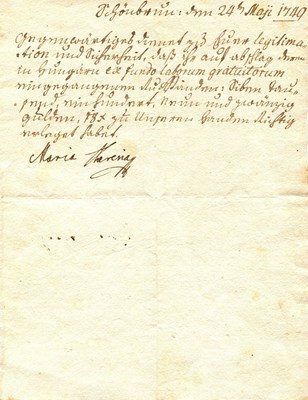 Schönbrun: den 24t Maji 1749
Gegenwärtiges dienet zu Euer legitima-
tion und Sicherheit, daß Ihr auf abschlag deren
in Hungarn ex fundo laborum gratuitorum
eingegangenen Rückständen: Siben Tau-
send, ein hundert, Neun und zwanzig
gulden, 18 x zu Unseren handen Richtig
erleget habet.
Maria Theresia